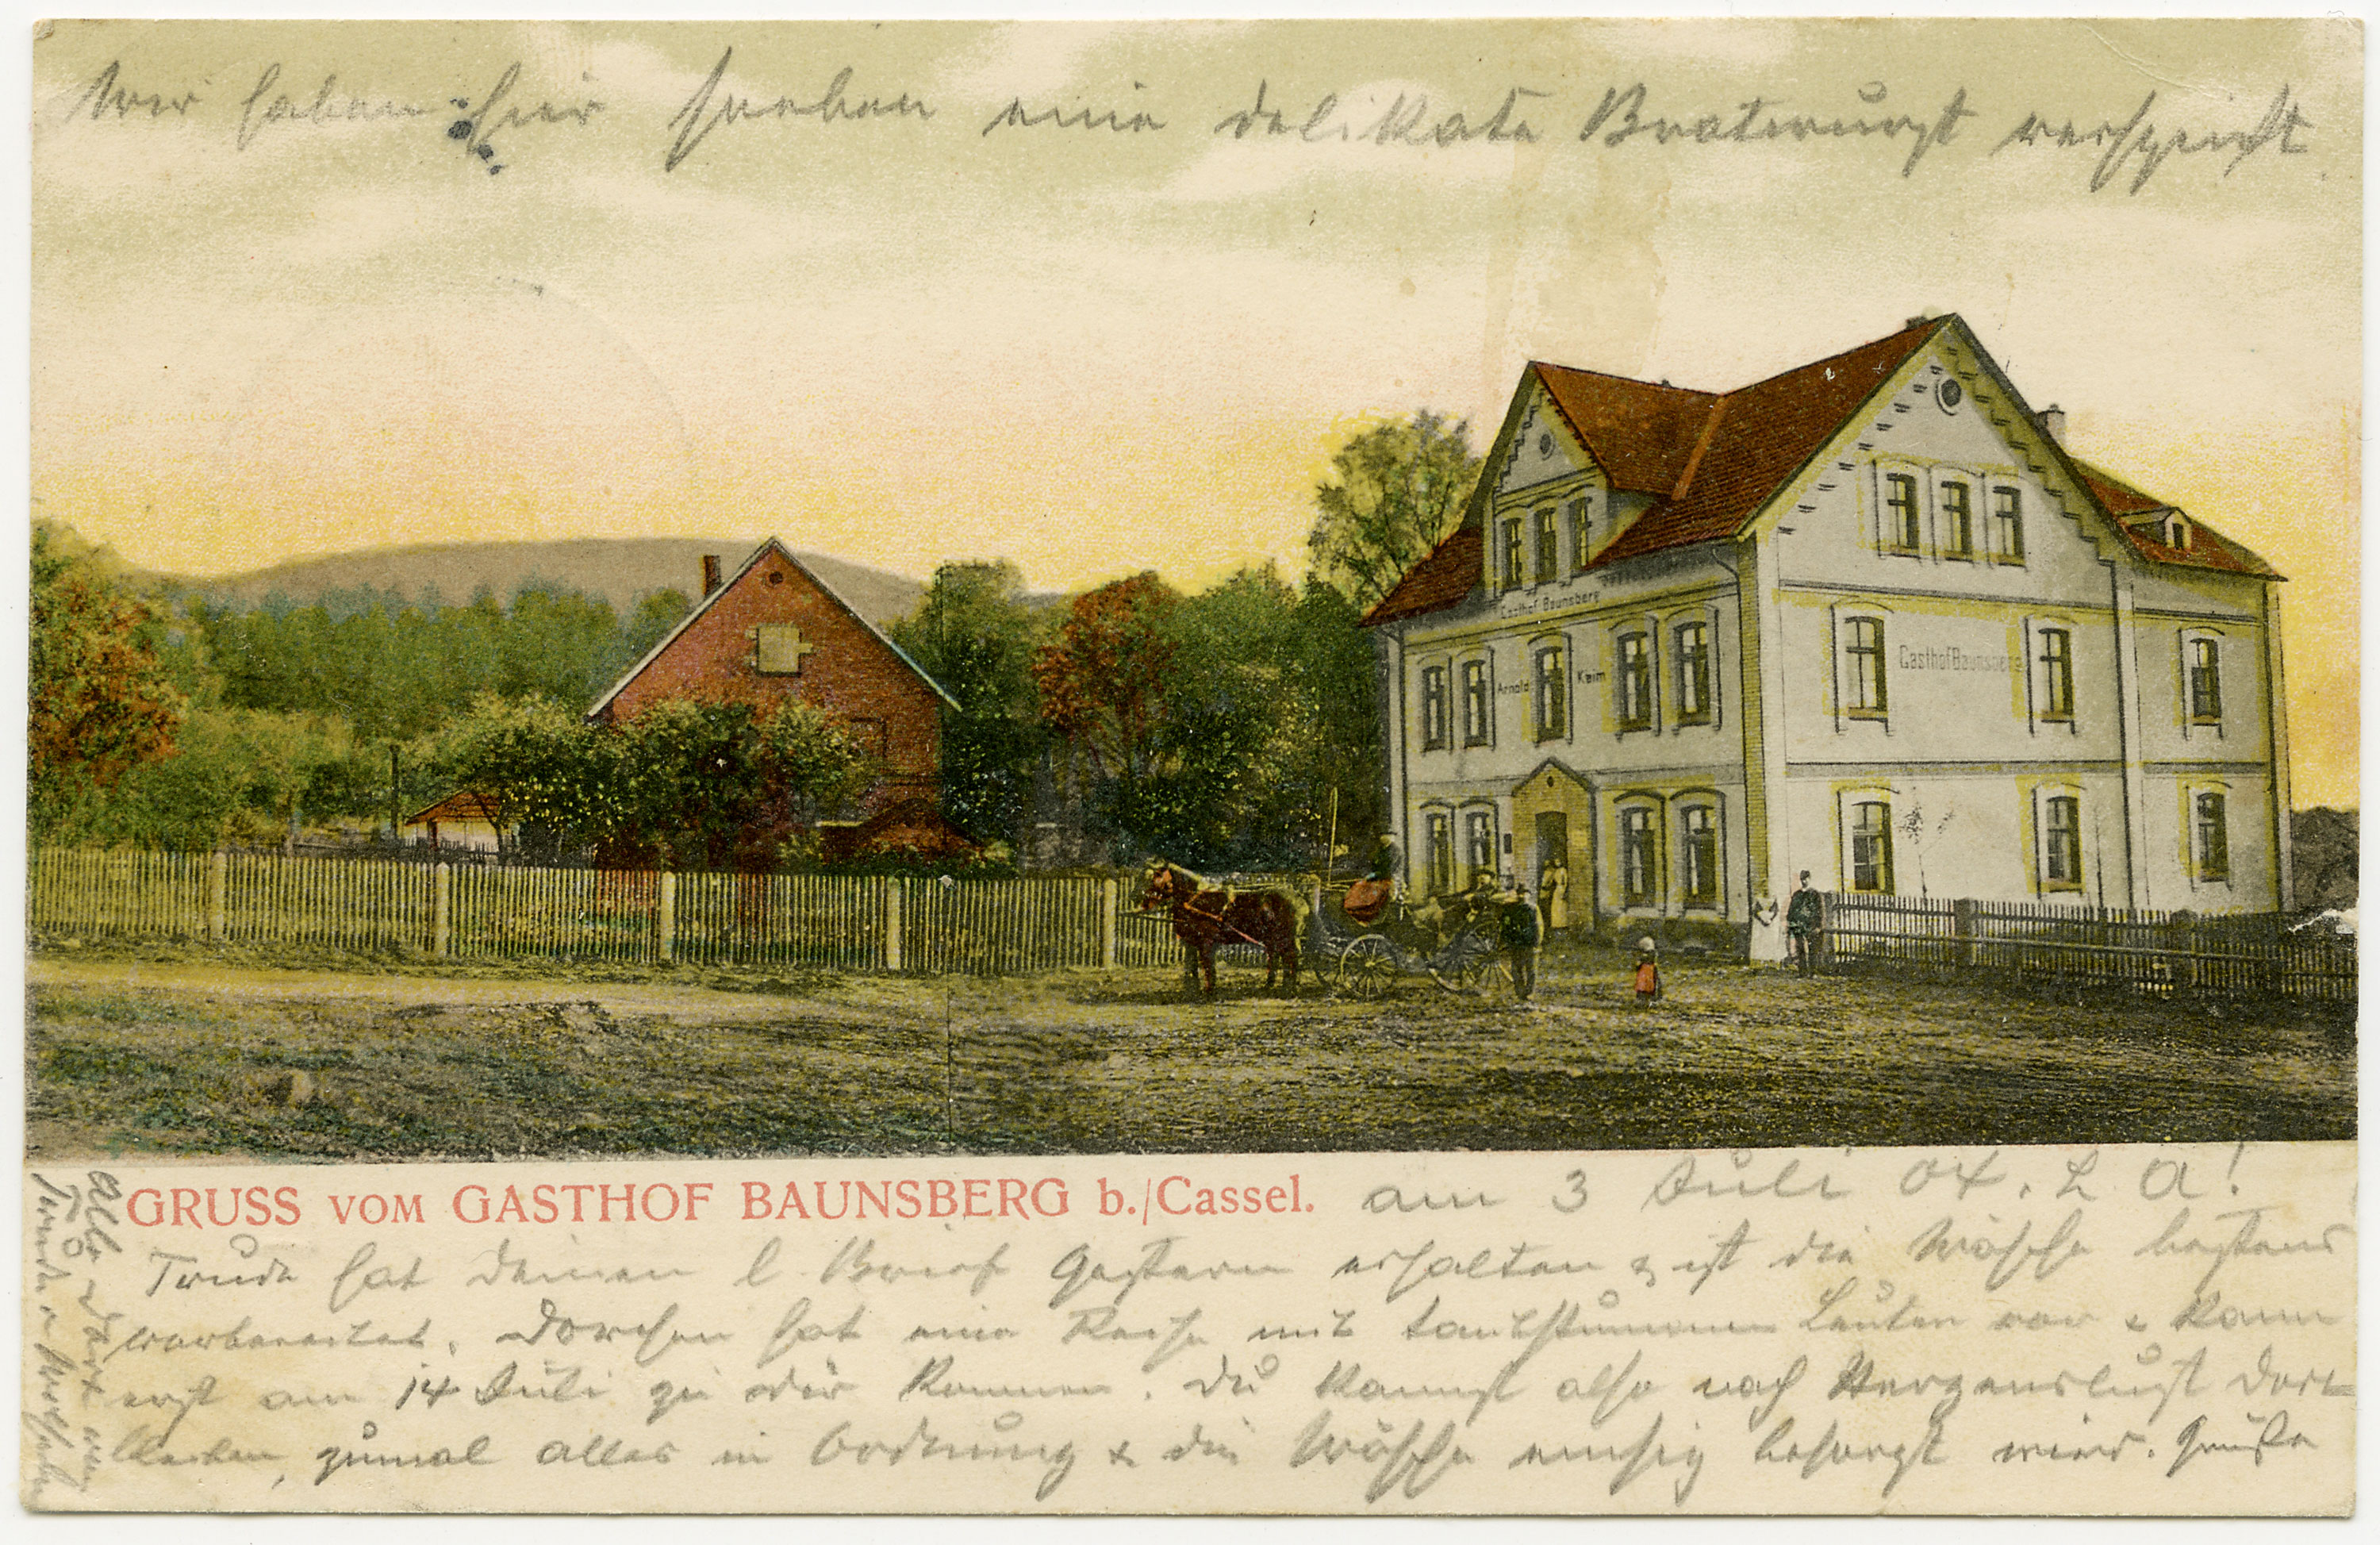 Wir haben hier soeben eine delikate Bratwurst verspeist
Gasthof Baunsberg
Arnold Keim
Gasthof Baunsberg
GRUSS VOM GASTHOF BAUNSBERG b./Cassel. am 3 Juli 04. L A!
Trude hat deinen l. Brief gestern erhalten & ist die Wäsche bestens
vorbereitet. Dorchen hat eine Reise mit taubstummen Leuten vor & kann
erst am 14 Juli zu dir kommen. Du kannst also nach Herzenslust dort
bleiben, zumal alles in Ordnung & die Wäsche emsig besorgt wird. Grüße
Alb